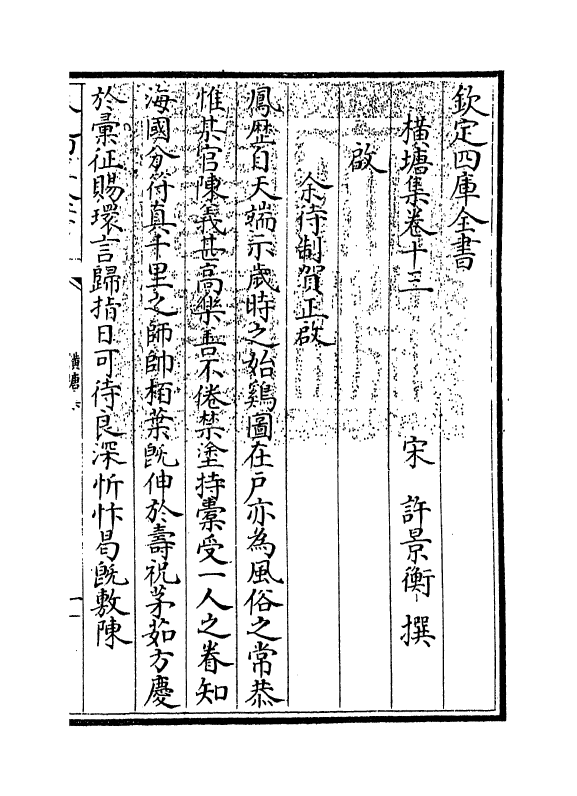 欽定四庫全書
橫塘集卷十三
宋 許景衡 撰
啟
余待制賀正啟
鳳歴自天端示歲時之始鷄圖在戶亦為風俗之常恭
惟某官陳義甚高樂善不倦禁塗持橐受一人之眷知
海國分符真千里之師帥栢葉既伸於壽祝茅茹方慶
於彚征賜環言歸指日可待良深忻忭曷既敷陳